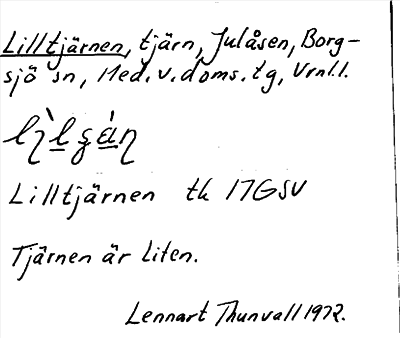 Lilltjärnen, tjärn, Julåsen, Borg-
sjö sn, Med. v. doms. tg, Vrnl.l.
Lilltjärnen tk 17GSV
Tjärnen är liten.
Lennart Thunvall 1972.